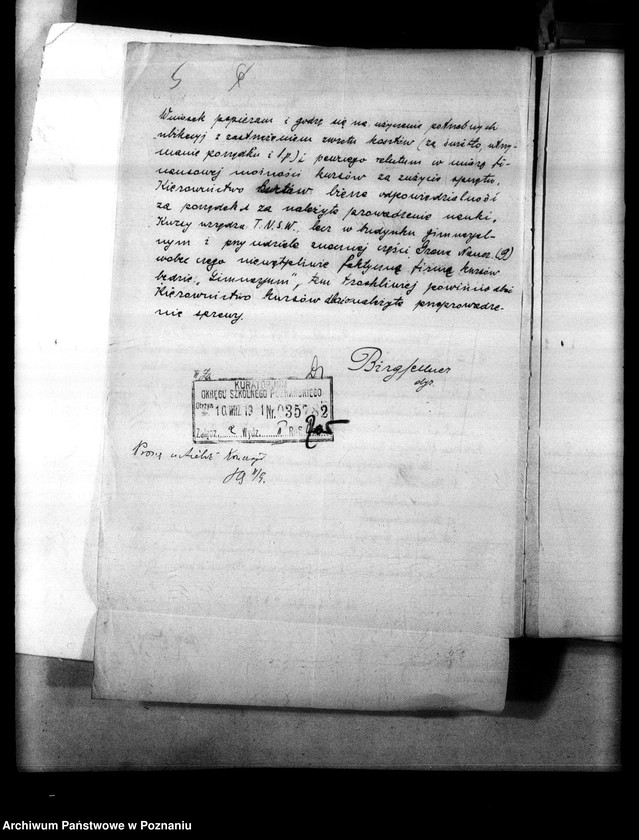 Wniosek popieram i godzę się na użyczenie potrzebnych
ubikacyj z zastrzeżeniem zwrotu kosztów (za światło, utrzy-
manie porządku i t.p.) i pewnego relutum w miarę fi-
nansowej możności kursów za zużycie sprzętu.
Kierownictwo bierze odpowiedzialność
za porządek i za należyte prowadzenie nauki.
Kursy urządza T.N.S.W., lecz w budynku gimnazjal-
nym i przy udziale znacznej części Grona Naucz. (9)
wobec czego niewątpliwie faktyczną firmą kursów
będzie „Gimnazjum", tem troskliwiej powinno
Kierownictwo kursów należyte przeprowadze-
nie sprawy.
Dr Birgfellner
dyr.
KURATORJUM
OKRĘGU SZKOLNEGO POZNAŃSKIEGO
10 WRZ. 19 1 Nr. 035282
Załącz. Wydz. II
Proszę
Archiwum Państwowe w Poznaniu